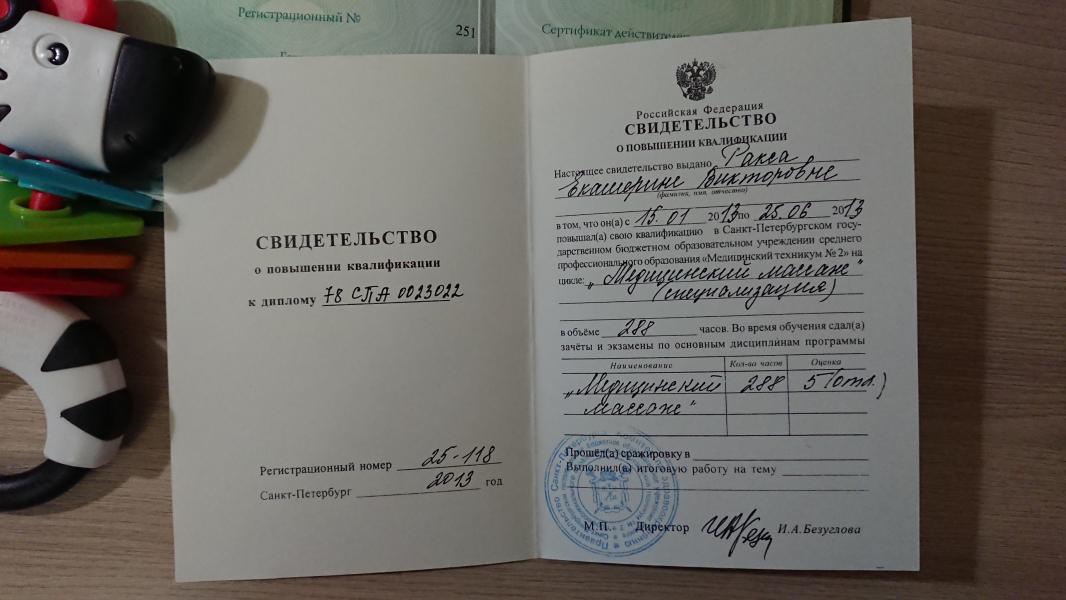 Регистрационный №
251
Сертификат действителен
СВИДЕТЕЛЬСТВО
о повышении квалификации
к диплому 78 СПА 0023022
Регистрационный номер 25-118
Санкт-Петербург 2013 год
Российская Федерация
СВИДЕТЕЛЬСТВО
О ПОВЫШЕНИИ КВАЛИФИКАЦИИ
Настоящее свидетельство выдано Ракса
Екатерине Викторовне
(фамилия, имя, отчество)
в том, что он(а) с 15.01 2013 по 25.06 2013
повышал(а) свою квалификацию в Санкт-Петербургском госу-
дарственном бюджетном образовательном учреждении среднего
профессионального образования «Медицинский техникум № 2» на
цикле: „Медицинский массаж"
(специализация)
в объёме 288 часов. Во время обучения сдал(а)
зачёты и экзамены по основным дисциплинам программы
Наименование Кол-во часов Оценка
„Медицинский 288 5 (отл.)
массаж"
Прошёл(а) сражировку в
Выполнил(а) итоговую работу на тему
М.П. Директор И.А.Безуглова